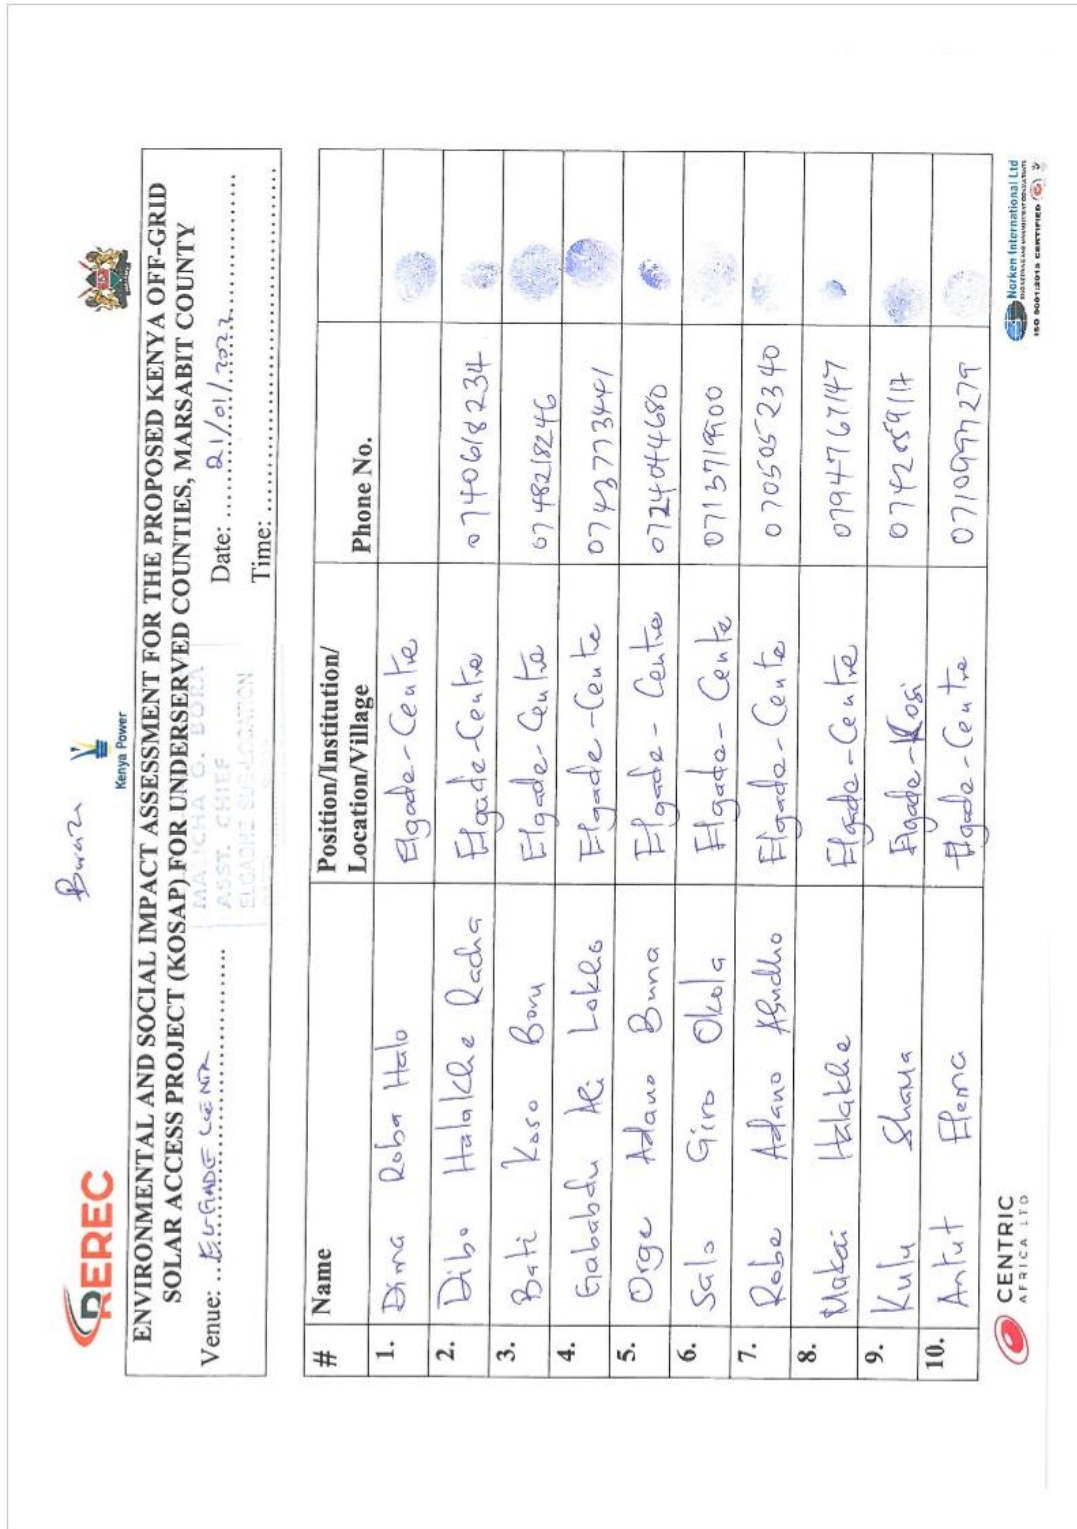 Bwaza
REREC
Kenya Power
ENVIRONMENTAL AND SOCIAL IMPACT ASSESSMENT FOR THE PROPOSED KENYA OFF-GRID
SOLAR ACCESS PROJECT (KOSAP) FOR UNDERSERVED COUNTIES, MARSABIT COUNTY
Venue: ELGADE CENTR Date: 21/01/2022
MALICHA G. BORA
ASST. CHIEF
ELGADHE SUB-LOCATION
Time:
# Name Position/Institution/ Phone No.
Location/Village
1. Dima Roba Halo Elgade-Centre
2. Dibo Halakhe Racha Elgade-Centre 0740618234
3. Bati Koso Boru Elgade-Centre 0748218246
4. Gababdu Ali Lokho Elgade-Centre 0743773441
5. Orge Adano Buna Elgade-Centre 0724044680
6. Salo Giro Okola Elgade-Cente
7. Robe Adano Abudho Elgade-Cente 0705052340
8. Makai Halakhe Elgade-Centre 0794767147
9. Kulu Shama Elgade-Kosi 0742059117
10. Antut Elema Elgade-Centre
CENTRIC
AFRICA LTD
Norken International Ltd
ISO 9001:2015 CERTIFIED